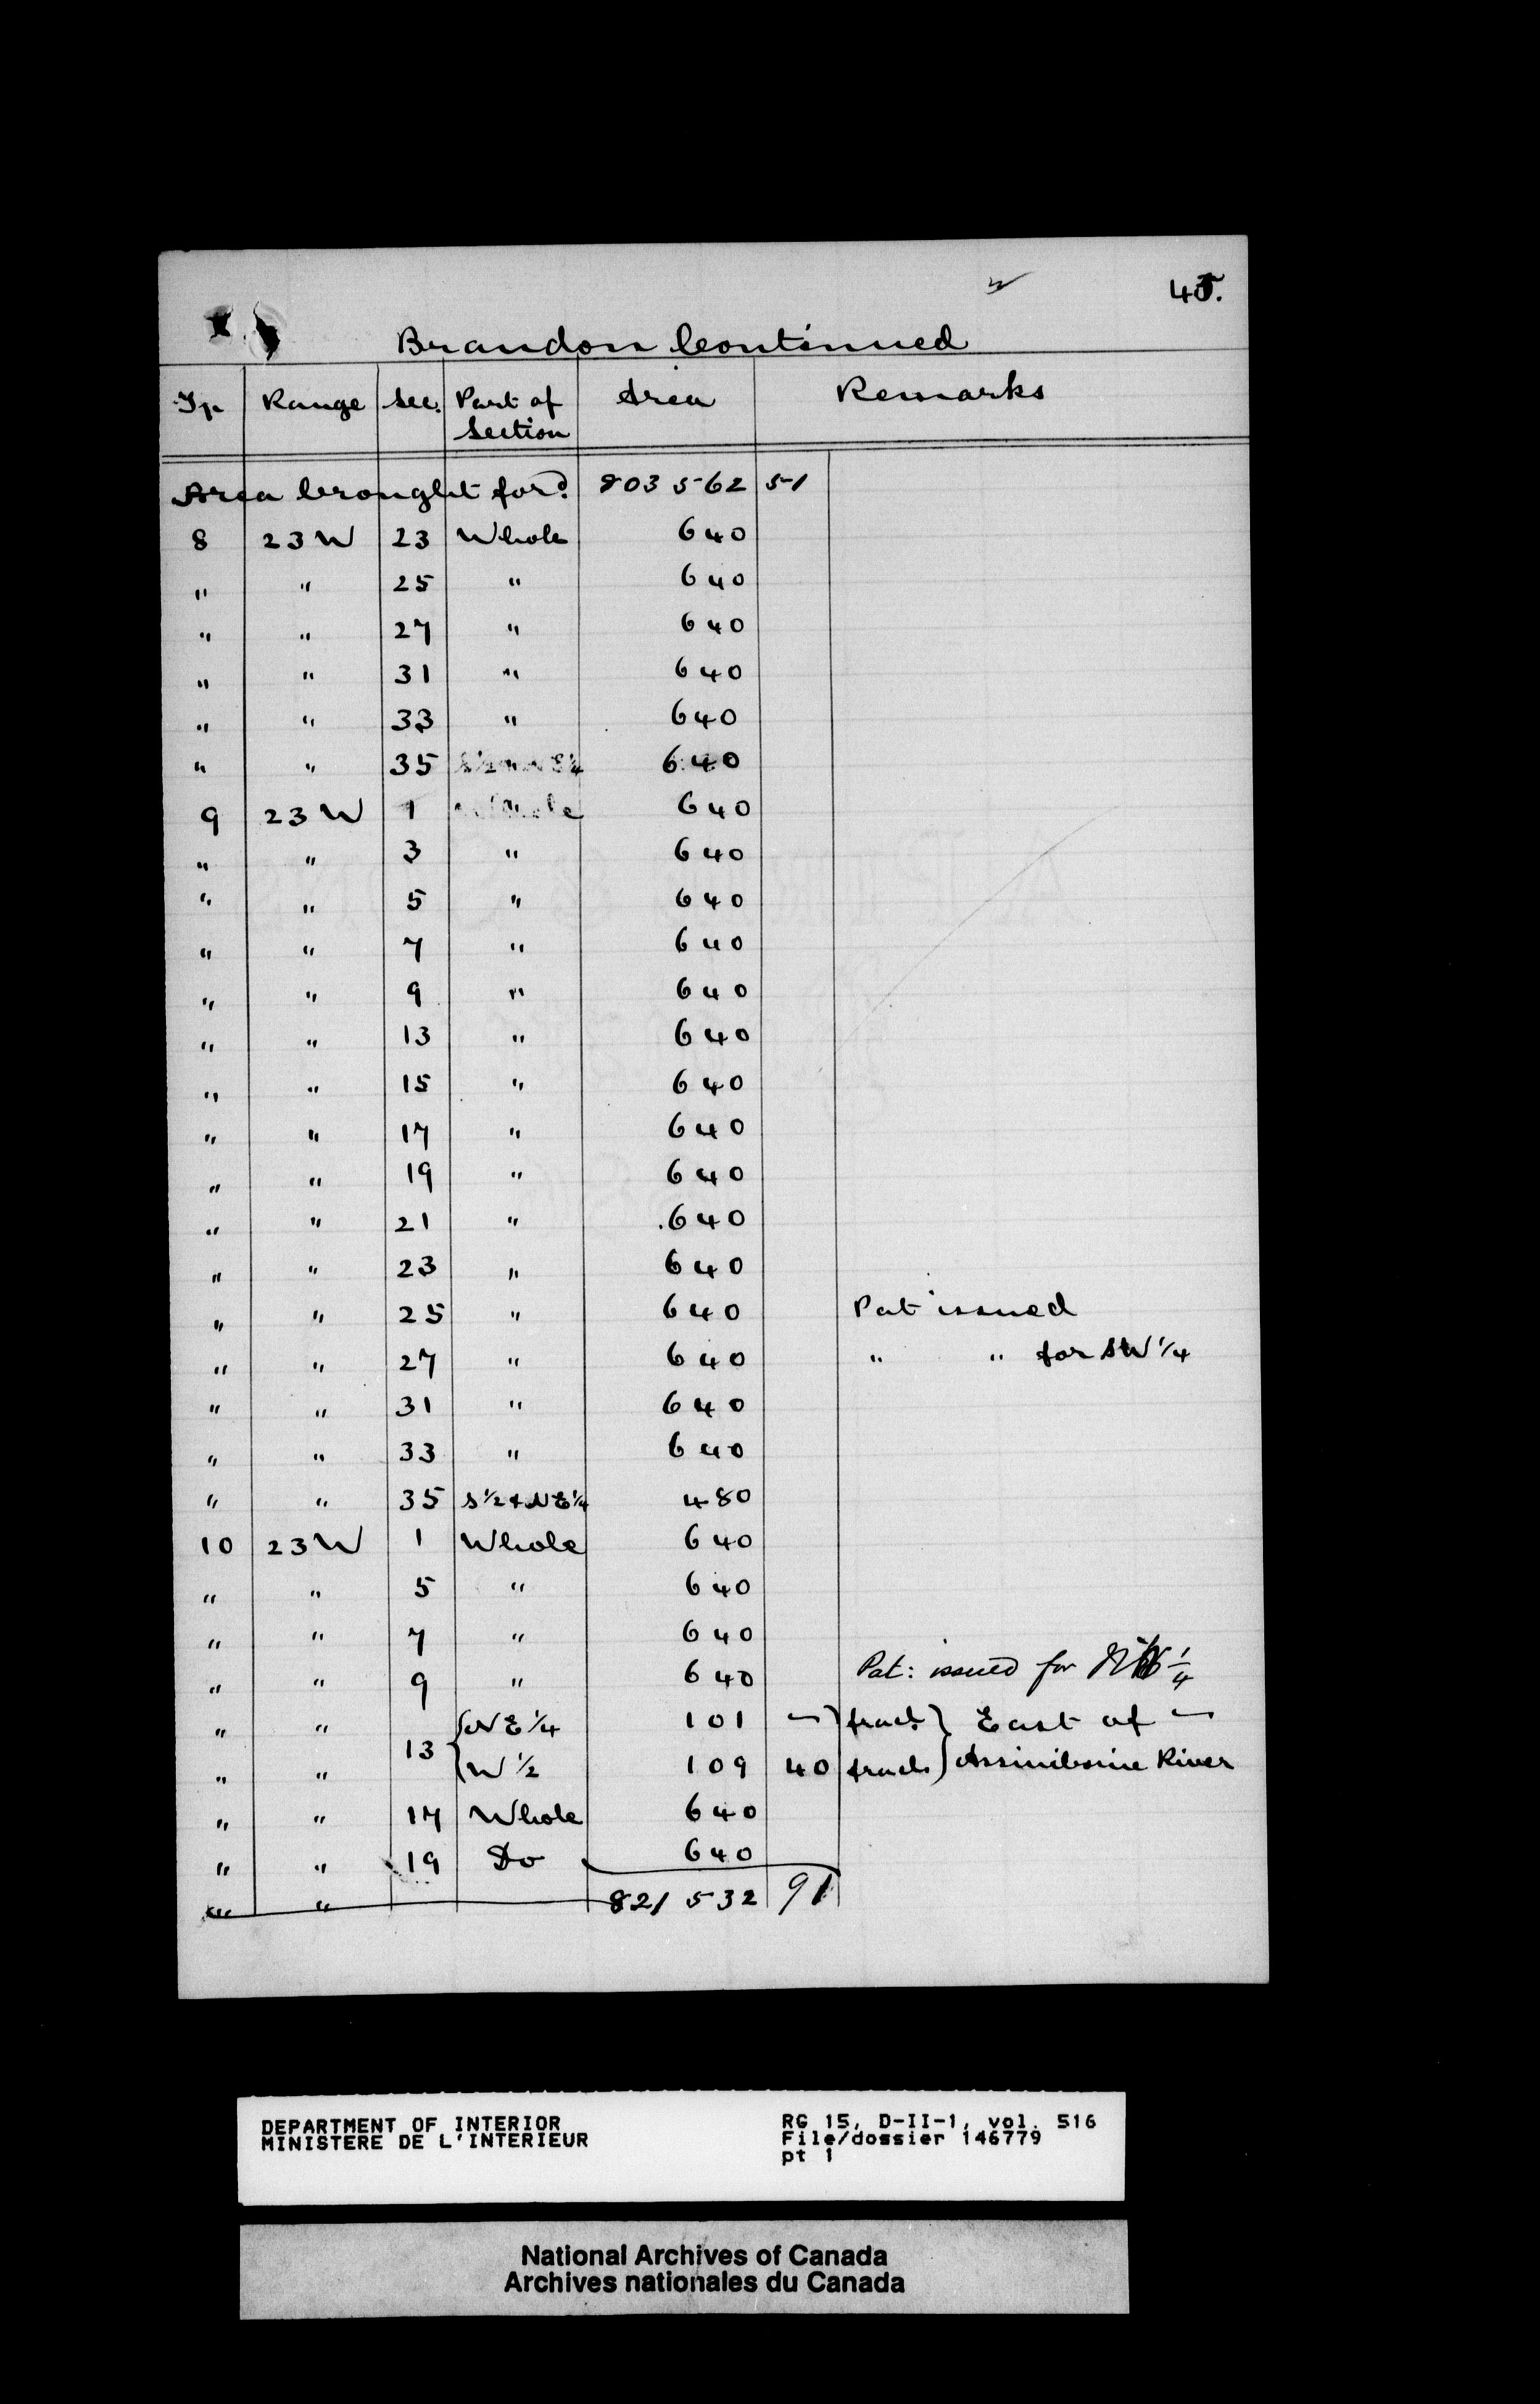 45.
Brandon Continued
Tp Range Sec. Part of Section Area Remarks
Area brought ford. 803 562 51
8 23 W 23 Whole 640
" " 25 " 640
" " 27 " 640
" " 31 " 640
" " 33 " 640
" " 35 640
9 23 W 1 640
" " 3 " 640
" " 5 " 640
" " 7 " 640
" " 9 " 640
" " 13 " 640
" " 15 " 640
" " 17 " 640
" " 19 " 640
" " 21 " 640
" " 23 " 640
" " 25 " 640 Pat issued
" " 27 " 640 " " for SW 1/4
" " 31 " 640
" " 33 " 640
" " 35 S 1/2 & NE 1/4 480
10 23 W 1 Whole 640
" " 5 " 640
" " 7 " 640
" " 9 " 640 Pat: issued for 1/4
" " 13 { NE 1/4 101 — } fracl. } East of —
" " { W 1/2 109 40 fracl. } Assiniboine River
" " 17 Whole 640
" " 19 Do 640
" " 821 532 91
DEPARTMENT OF INTERIOR
MINISTERE DE L'INTERIEUR
RG 15, D-II-1, vol. 516
File/dossier 146779
pt 1
National Archives of Canada
Archives nationales du Canada